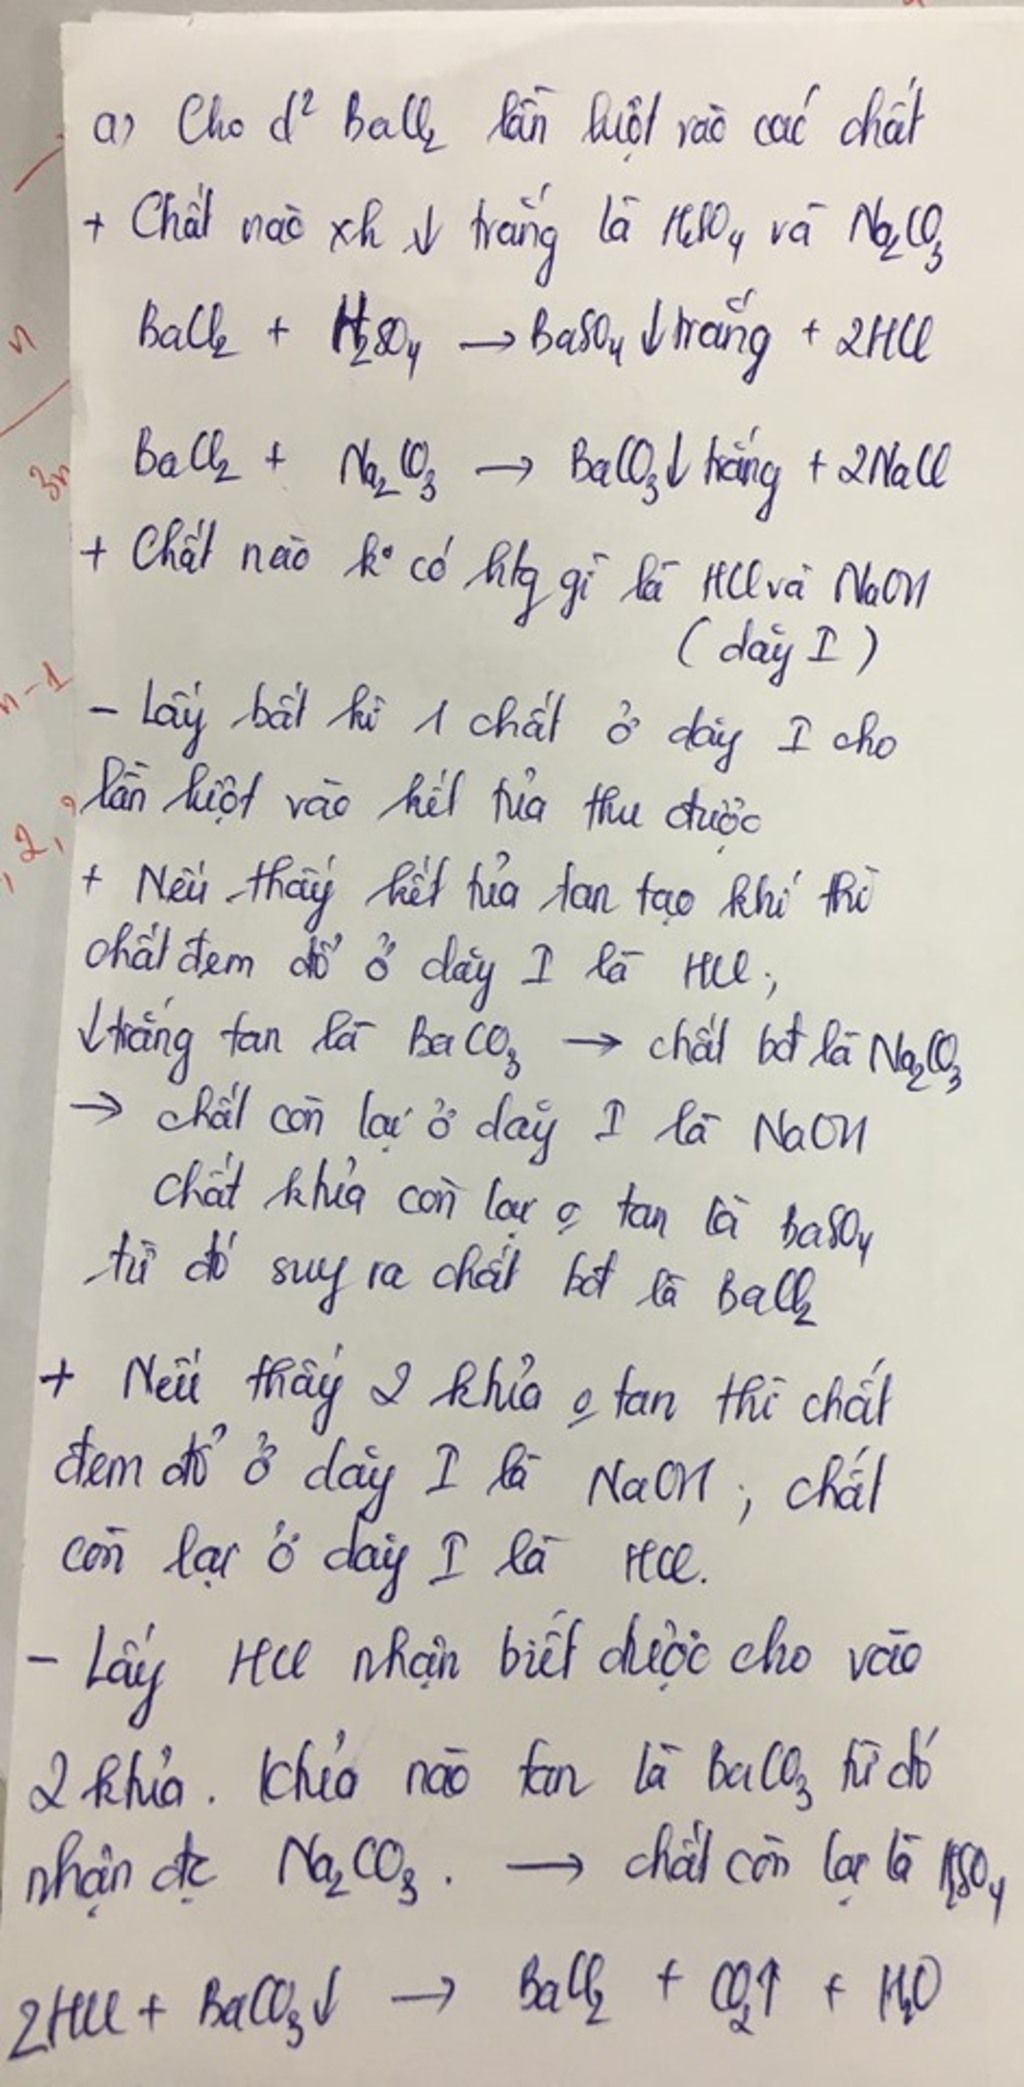 a) Cho d² BaCl₂ lần lượt vào các chất
+ Chất nào xh ↓ trắng là H₂SO₄ và Na₂CO₃
BaCl₂ + H₂SO₄ → BaSO₄ ↓ trắng + 2HCl
BaCl₂ + Na₂CO₃ → BaCO₃ ↓ trắng + 2NaCl
+ Chất nào k° có htg gì là HCl và NaOH
(dãy I)
- Lấy bất kì 1 chất ở dãy I cho
lần lượt vào kết tủa thu được
+ Nếu thấy kết tủa tan tạo khí thì
chất đem đổ ở dãy I là HCl;
↓ trắng tan là BaCO₃ → chất bđ là Na₂CO₃
→ chất còn lại ở dãy I là NaOH
chất khủa còn lại o tan là BaSO₄
từ đó suy ra chất bđ là BaCl₂
+ Nếu thấy 2 khủa o tan thì chất
đem đổ ở dãy I là NaOH; chất
còn lại ở dãy I là HCl.
- Lấy HCl nhận biết được cho vào
2 khủa. Khủa nào tan là BaCO₃ từ đó
nhận đc Na₂CO₃. → chất còn lại là H₂SO₄
2HCl + BaCO₃↓ → BaCl₂ + CO₂↑ + H₂O
n
3n
n-1
, 2,